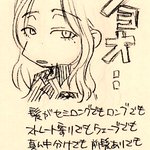 髪がセミロングでもロングでも
ストレート寄りでもウェーブでも
真ん中分けでも前髪ありでも